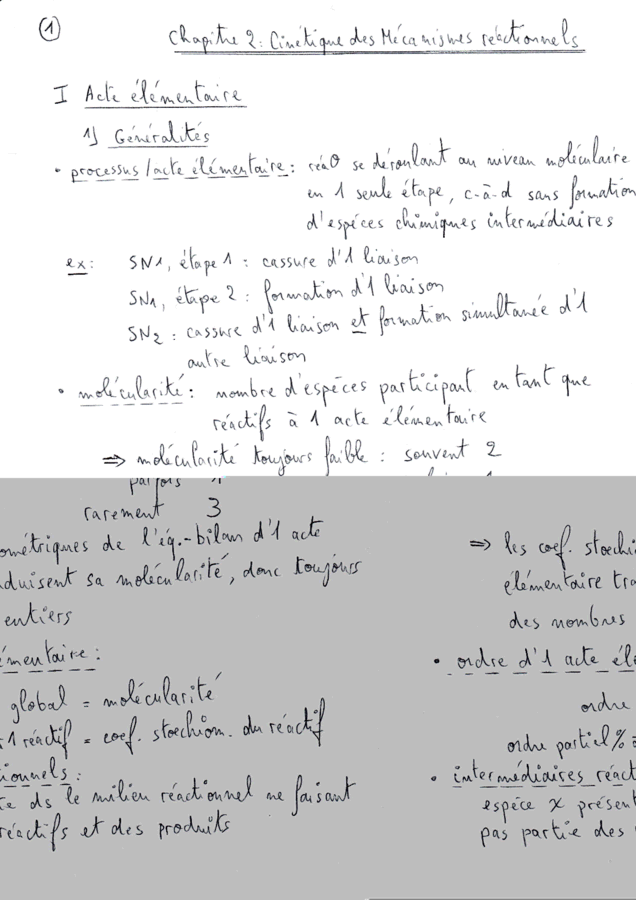 ①
Chapitre 2: Cinétique des Mécanismes réctionnels
I Acte élémentaire
1) Généralités
• processus/acte élémentaire: réa° se déroulant au niveau moléculaire
en 1 seule étape, c-à-d sans formation
d'espéces chimiques intermédiaires
ex: SN1, étape 1 : cassure d'1 liaison
SN1, étape 2 : formation d'1 liaison
SN2 : cassure d'1 liaison et formation simultanée d'1
autre liaison
• molécularité: nombre d'espéces participant en tant que
réactifs à 1 acte élémentaire
⇒ molécularité toujours faible : souvent 2
parfois 1
rarement 3
ométriques de l'éq.-bilan d'1 acte
duisent sa molécularité, donc toujours
entiers
émentaire:
global = molécularité
1 réactif = coef. stoechiom. du réactif
ionnels:
te ds le milieu réactionnel ne faisant
réactifs et des produits
⇒ les coef. stoechi
élémentaire tra
des nombres
• ordre d'1 acte élé
ordre
ordre partiel %
• intermédiaires réact
espéce X présent
pas partie des